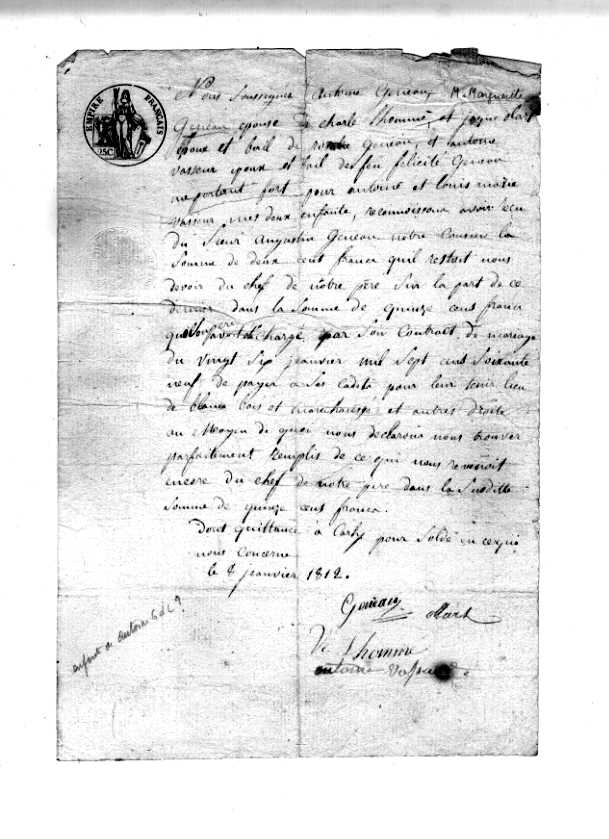 EMPIRE FRANÇAIS
25C
Nous Soussignés Antoine Geneau, M. Marguerite
Geneau epouse de charle Lhomme, et jaque olart
epoux et bail de Geneau, et antoine
vasseur epoux et bail de feu felicité Geneau
me portant fort pour antoine et Louis marie
vasseur, mes deux enfants, reconnoissons avoir reçu
du Sieur Augustin Geneau notre Cousin la
Somme de deux cent francs qu'il restoit nous
devoir du chef de nôtre père Sur la part de ce
dernier dans la Somme de quinze cens francs
que Son père avoit chargé par Son Contract de mariage
du vingt Six jeanvier mil Sept cens Soixante
neuf de payer à Ses cadets pour leur tenir lieu
de blancs bois et marchaussé et autres droits
au Moyen de quoi nous declarons nous trouver
parfaitement remplis de ce qui nous revenoit
encore du chef de notre pere dans la Susditte
Somme de quinze cens francs.
Dont quittance à Carly pour Solde en ce qui
nous Concerne
le 8 jeanvier 1812.
Geneau olart
Ve Lhomme
antoine Vasseur
enfant de Antoine